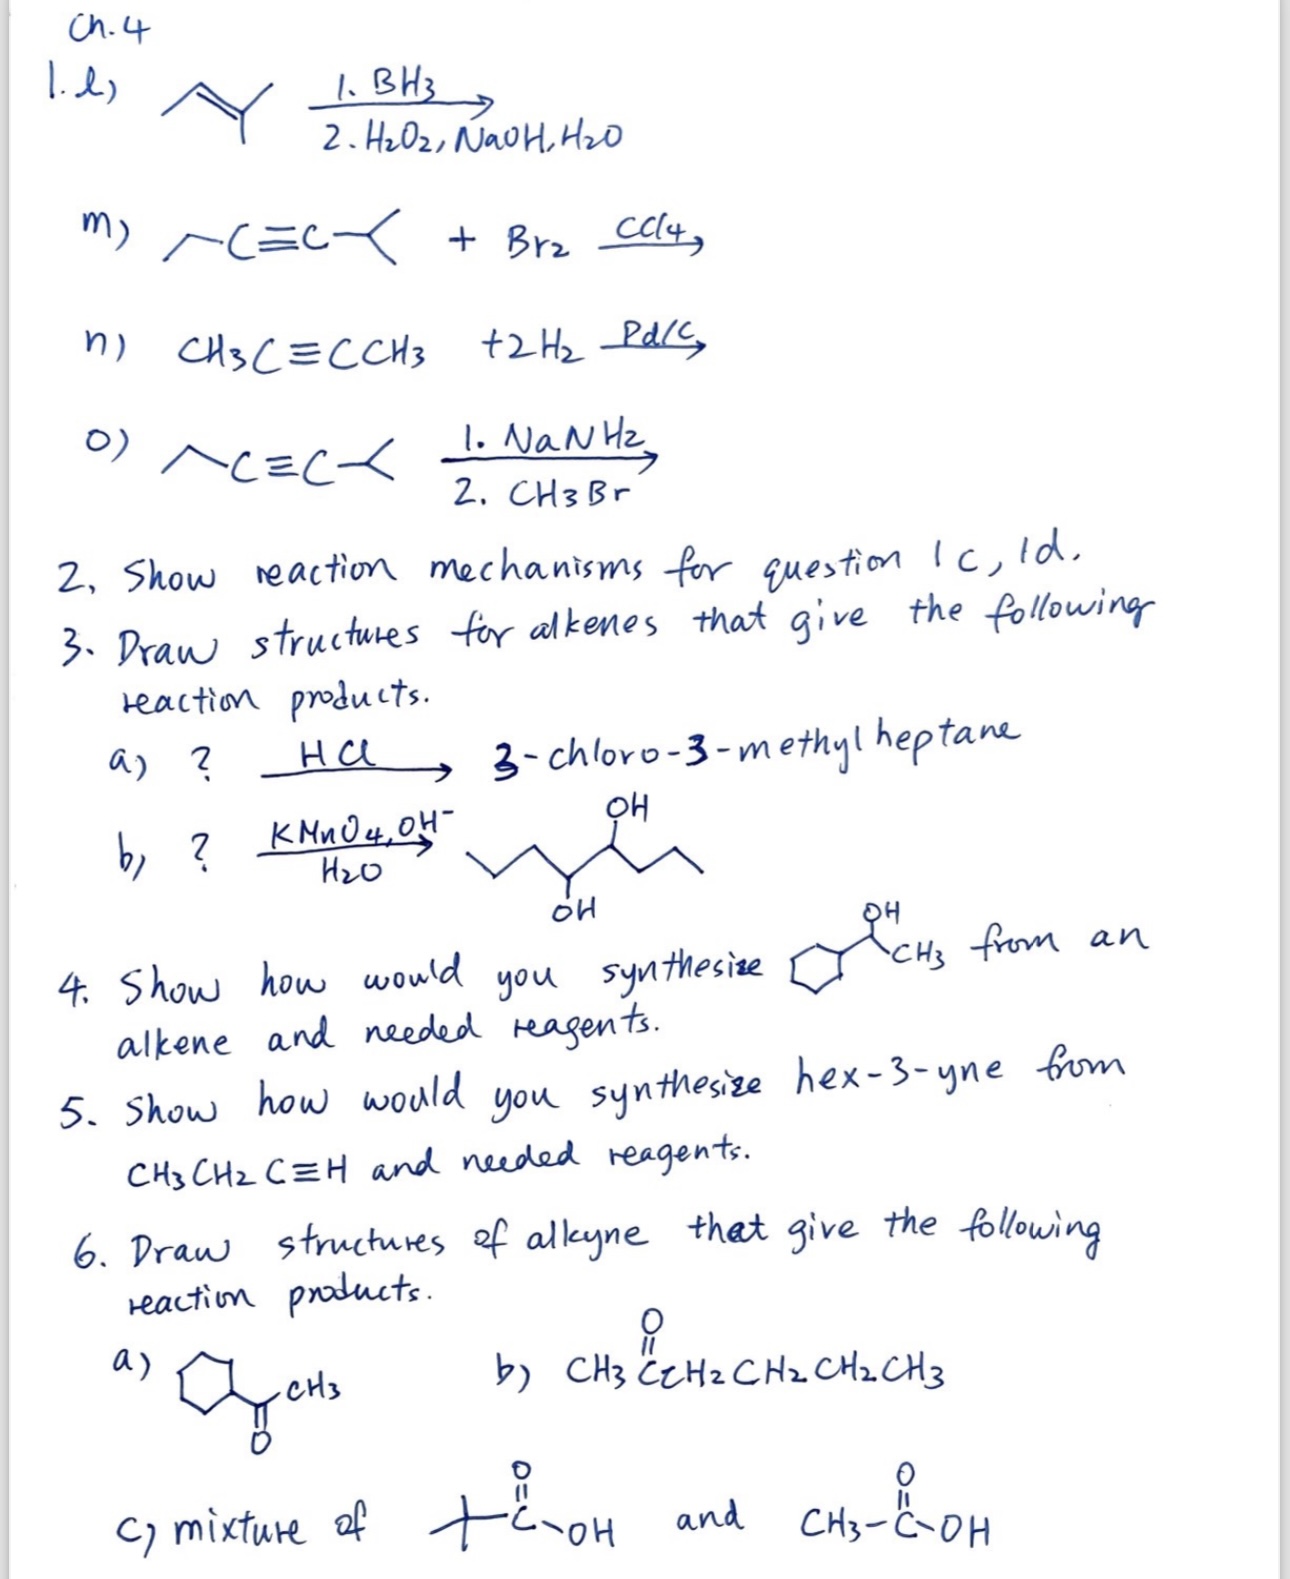 Ch. 4
1. l) 1. BH3
2. H2O2, NaOH, H2O
m) C≡C + Br2 CCl4
n) CH3C≡CCH3 +2H2 Pd/C
o) C≡C 1. NaNH2
2. CH3Br
2, Show reaction mechanisms for question 1c, 1d.
3. Draw structures for alkenes that give the following
reaction products.
a) ? HCl 3-chloro-3-methylheptane
OH
b) ? KMnO4, OH-
H2O
OH
4. Show how would you synthesize OH CH3 from an
alkene and needed reagents.
5. Show how would you synthesize hex-3-yne from
CH3CH2C≡H and needed reagents.
6. Draw structures of alkyne that give the following
reaction products.
a) CH3 O
b) CH3CCH2CH2CH2CH3 O
c) mixture of O C-OH and CH3-C-OH O